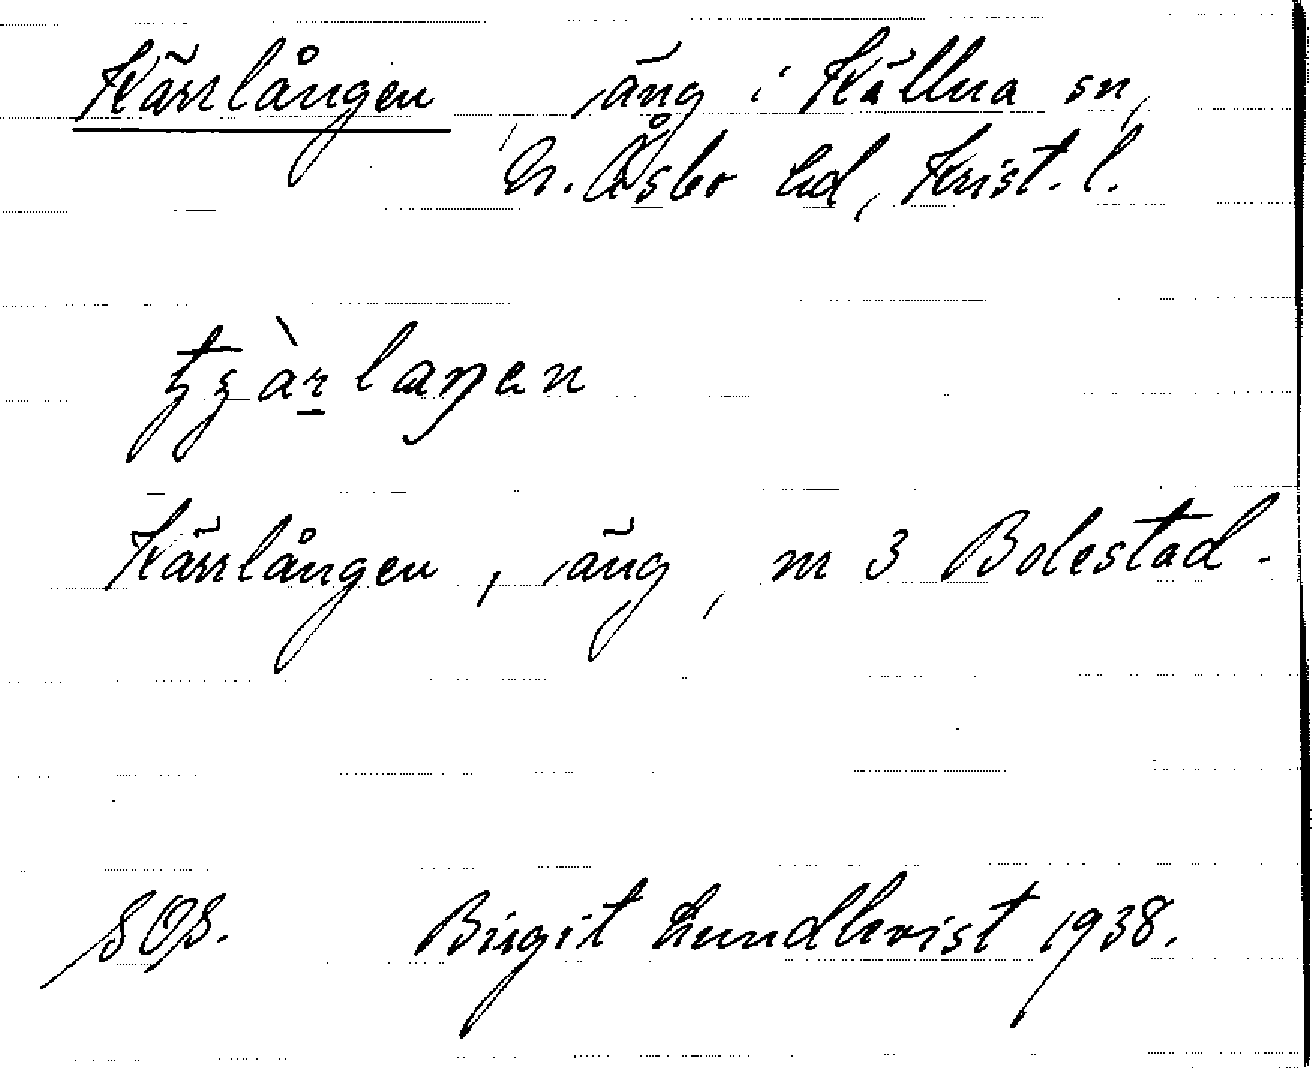 Kärrlången äng i Källna sn,
N. Åsbo hd, Krist. l.
Kärrlången, äng, nr 3 Bolestad.
Birgit Lundkvist 1938.